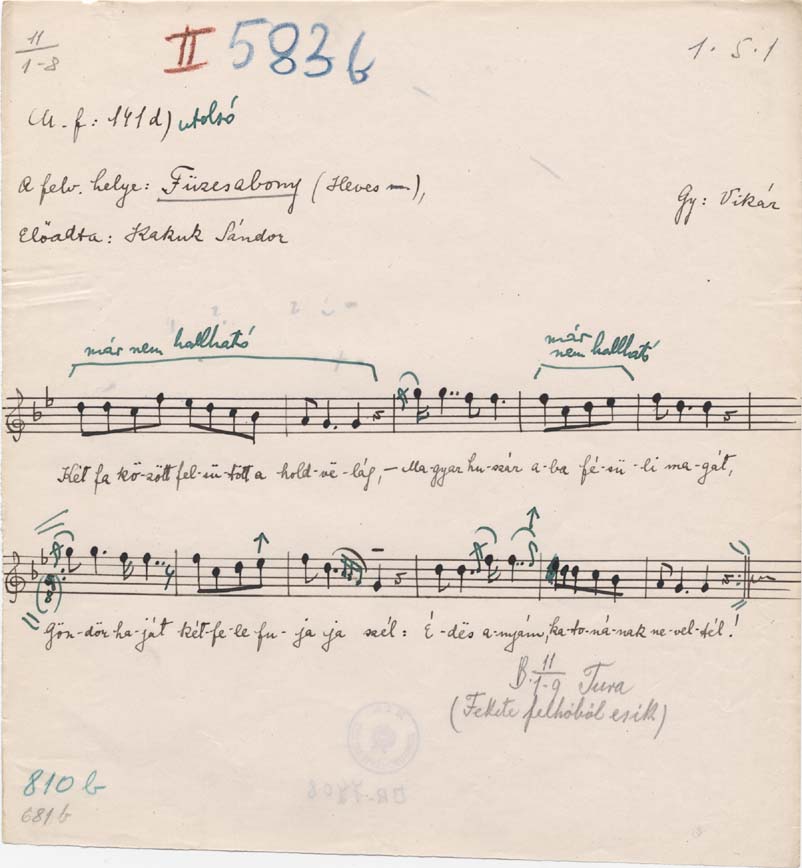 11
1-8
II 583 b
1. 5. 1
(M. f: 141 d) utolsó
A felv. helye: Füzesabony (Heves m),
Gy: Vikár
Előadta: Kakuk Sándor
már nem hallható
már
nem hallható
Két fa kö-zött fel-sü-tött a hold-vë-lág, – Ma-gyar hu-szár a-ba fé-sü-li ma-gát,
8
Gön-dör ha-ját két-fe-le fu-ja ja szél: É-dës a-nyám, ka-to-ná-nak ne-vel-tél!
B. 11
1-9 Tura
(Fekete felhőből esik)
810 b
681 b